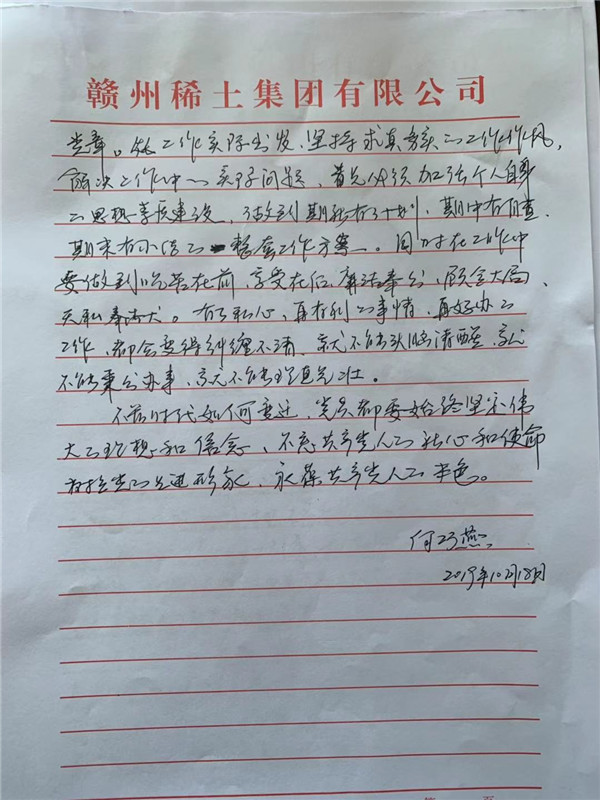 赣州稀土集团有限公司
党章。从工作实际出发，坚持求真务实的工作作风，
解决工作中的实际问题，首先必须加强个人自身
的思想素质建设，做到期初有计划，期中有自查，
期末有小结的一整套工作方案。同时在工作中
要做到吃苦在前，享受在后，廉洁奉公，顾全大局，
无私奉献。有了私心，再有利的事情，再好办的
工作，都会变得纠缠不清，就不能头脑清醒，就
不能秉公办事，就不能理直气壮。
不论时代如何变迁，党员都要始终坚定伟
大的理想和信念，不忘共产党人的初心和使命
的先进形象，永葆共产党人的本色。
何巧燕
2019年10月18日